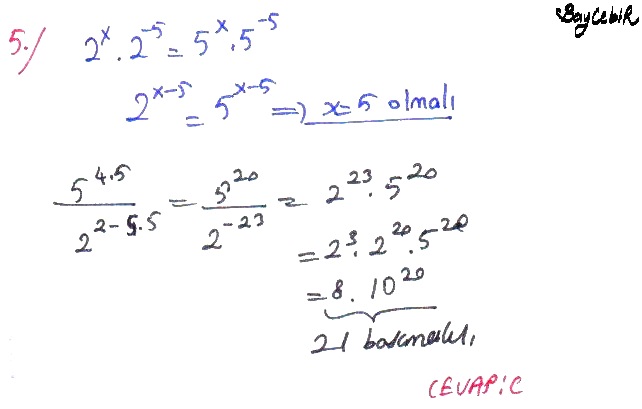 BayCebiR
5./ 2^x . 2^-5 = 5^x . 5^-5
2^x-5 = 5^x-5 => x=5 olmalı
5^4.5 / 2^2-5.5 = 5^20 / 2^-23 = 2^23 . 5^20
= 2^3 . 2^20 . 5^20
= 8 . 10^20
21 basamaklı
CEVAP:C